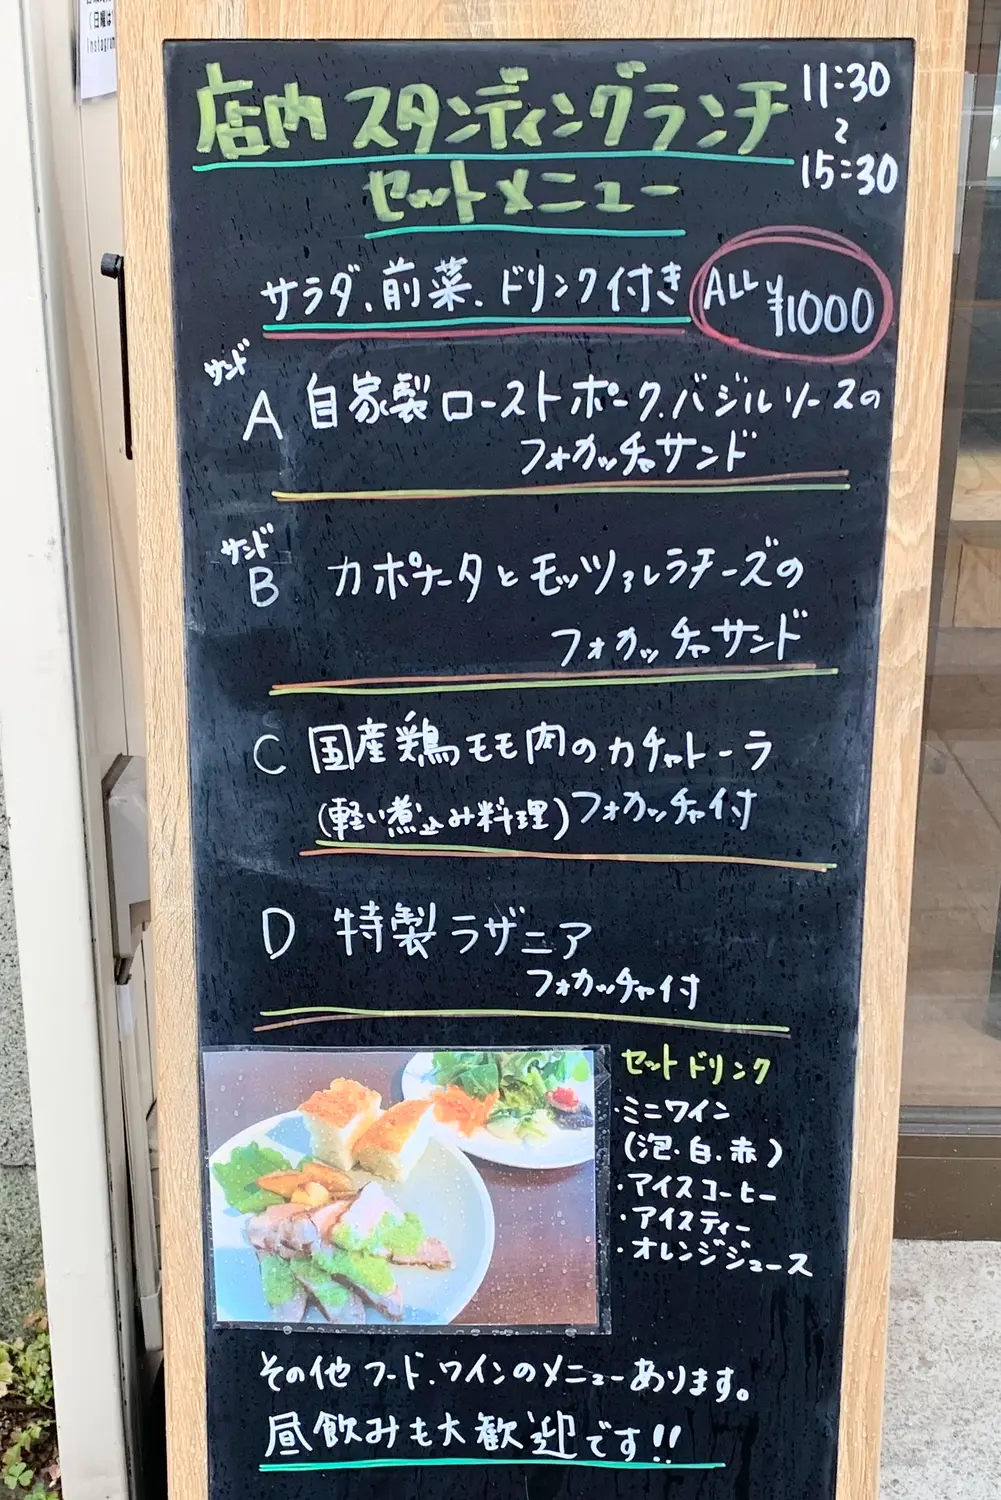 (日曜は
Instagram
店内スタンディングランチ
セットメニュー
11:30
〜
15:30
サラダ、前菜、ドリンク付き
ALL ¥1000
サンド
A 自家製ローストポーク、バジルソースの
フォカッチャサンド
サンド
B カポナータとモッツァレラチーズの
フォカッチャサンド
C 国産鶏モモ肉のカチャトーラ
(軽い煮込み料理)フォカッチャ付
D 特製ラザニア
フォカッチャ付
セットドリンク
・ミニワイン
(泡・白・赤)
・アイスコーヒー
・アイスティー
・オレンジジュース
その他フード、ワインのメニューあります。
昼飲みも大歓迎です!!